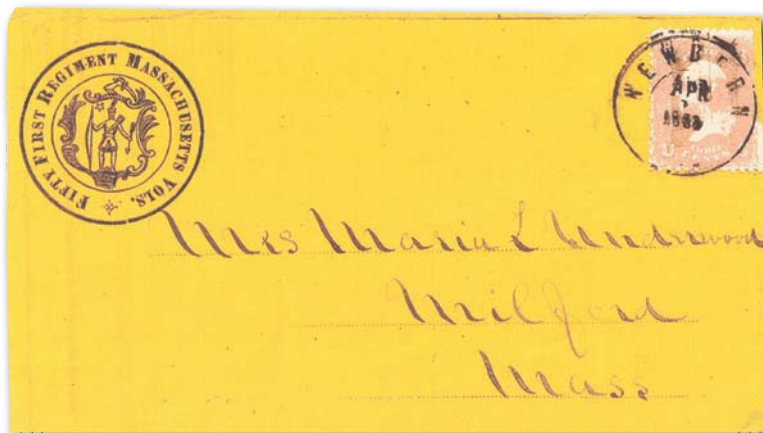 FIFTY FIRST REGIMENT MASSACHUSETTS VOLS.
NEWBERN
APR
1863
U THREE CENTS
Mrs Maria L Underwood
Milford
Mass